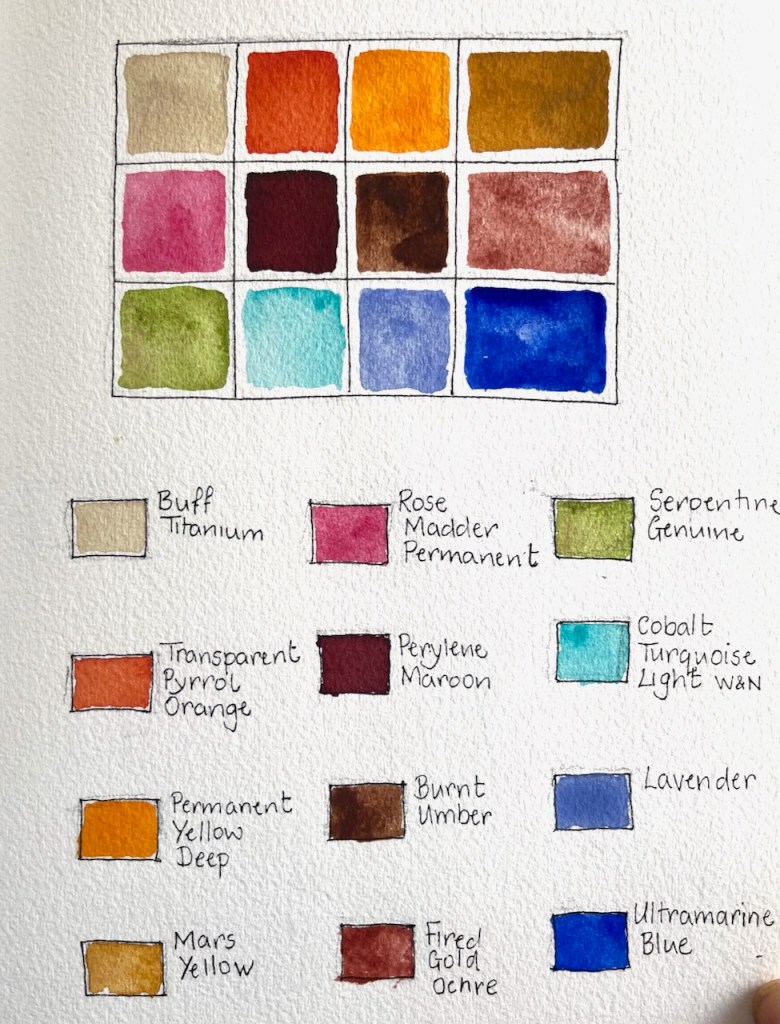 Buff
Titanium
Rose
Madder
Permanent
Serpentine
Genuine
Transparent
Pyrrol
Orange
Perylene
Maroon
Cobalt
Turquoise
Light W&N
Permanent
Yellow
Deep
Burnt
Umber
Lavender
Mars
Yellow
Fired
Gold
Ochre
Ultramarine
Blue